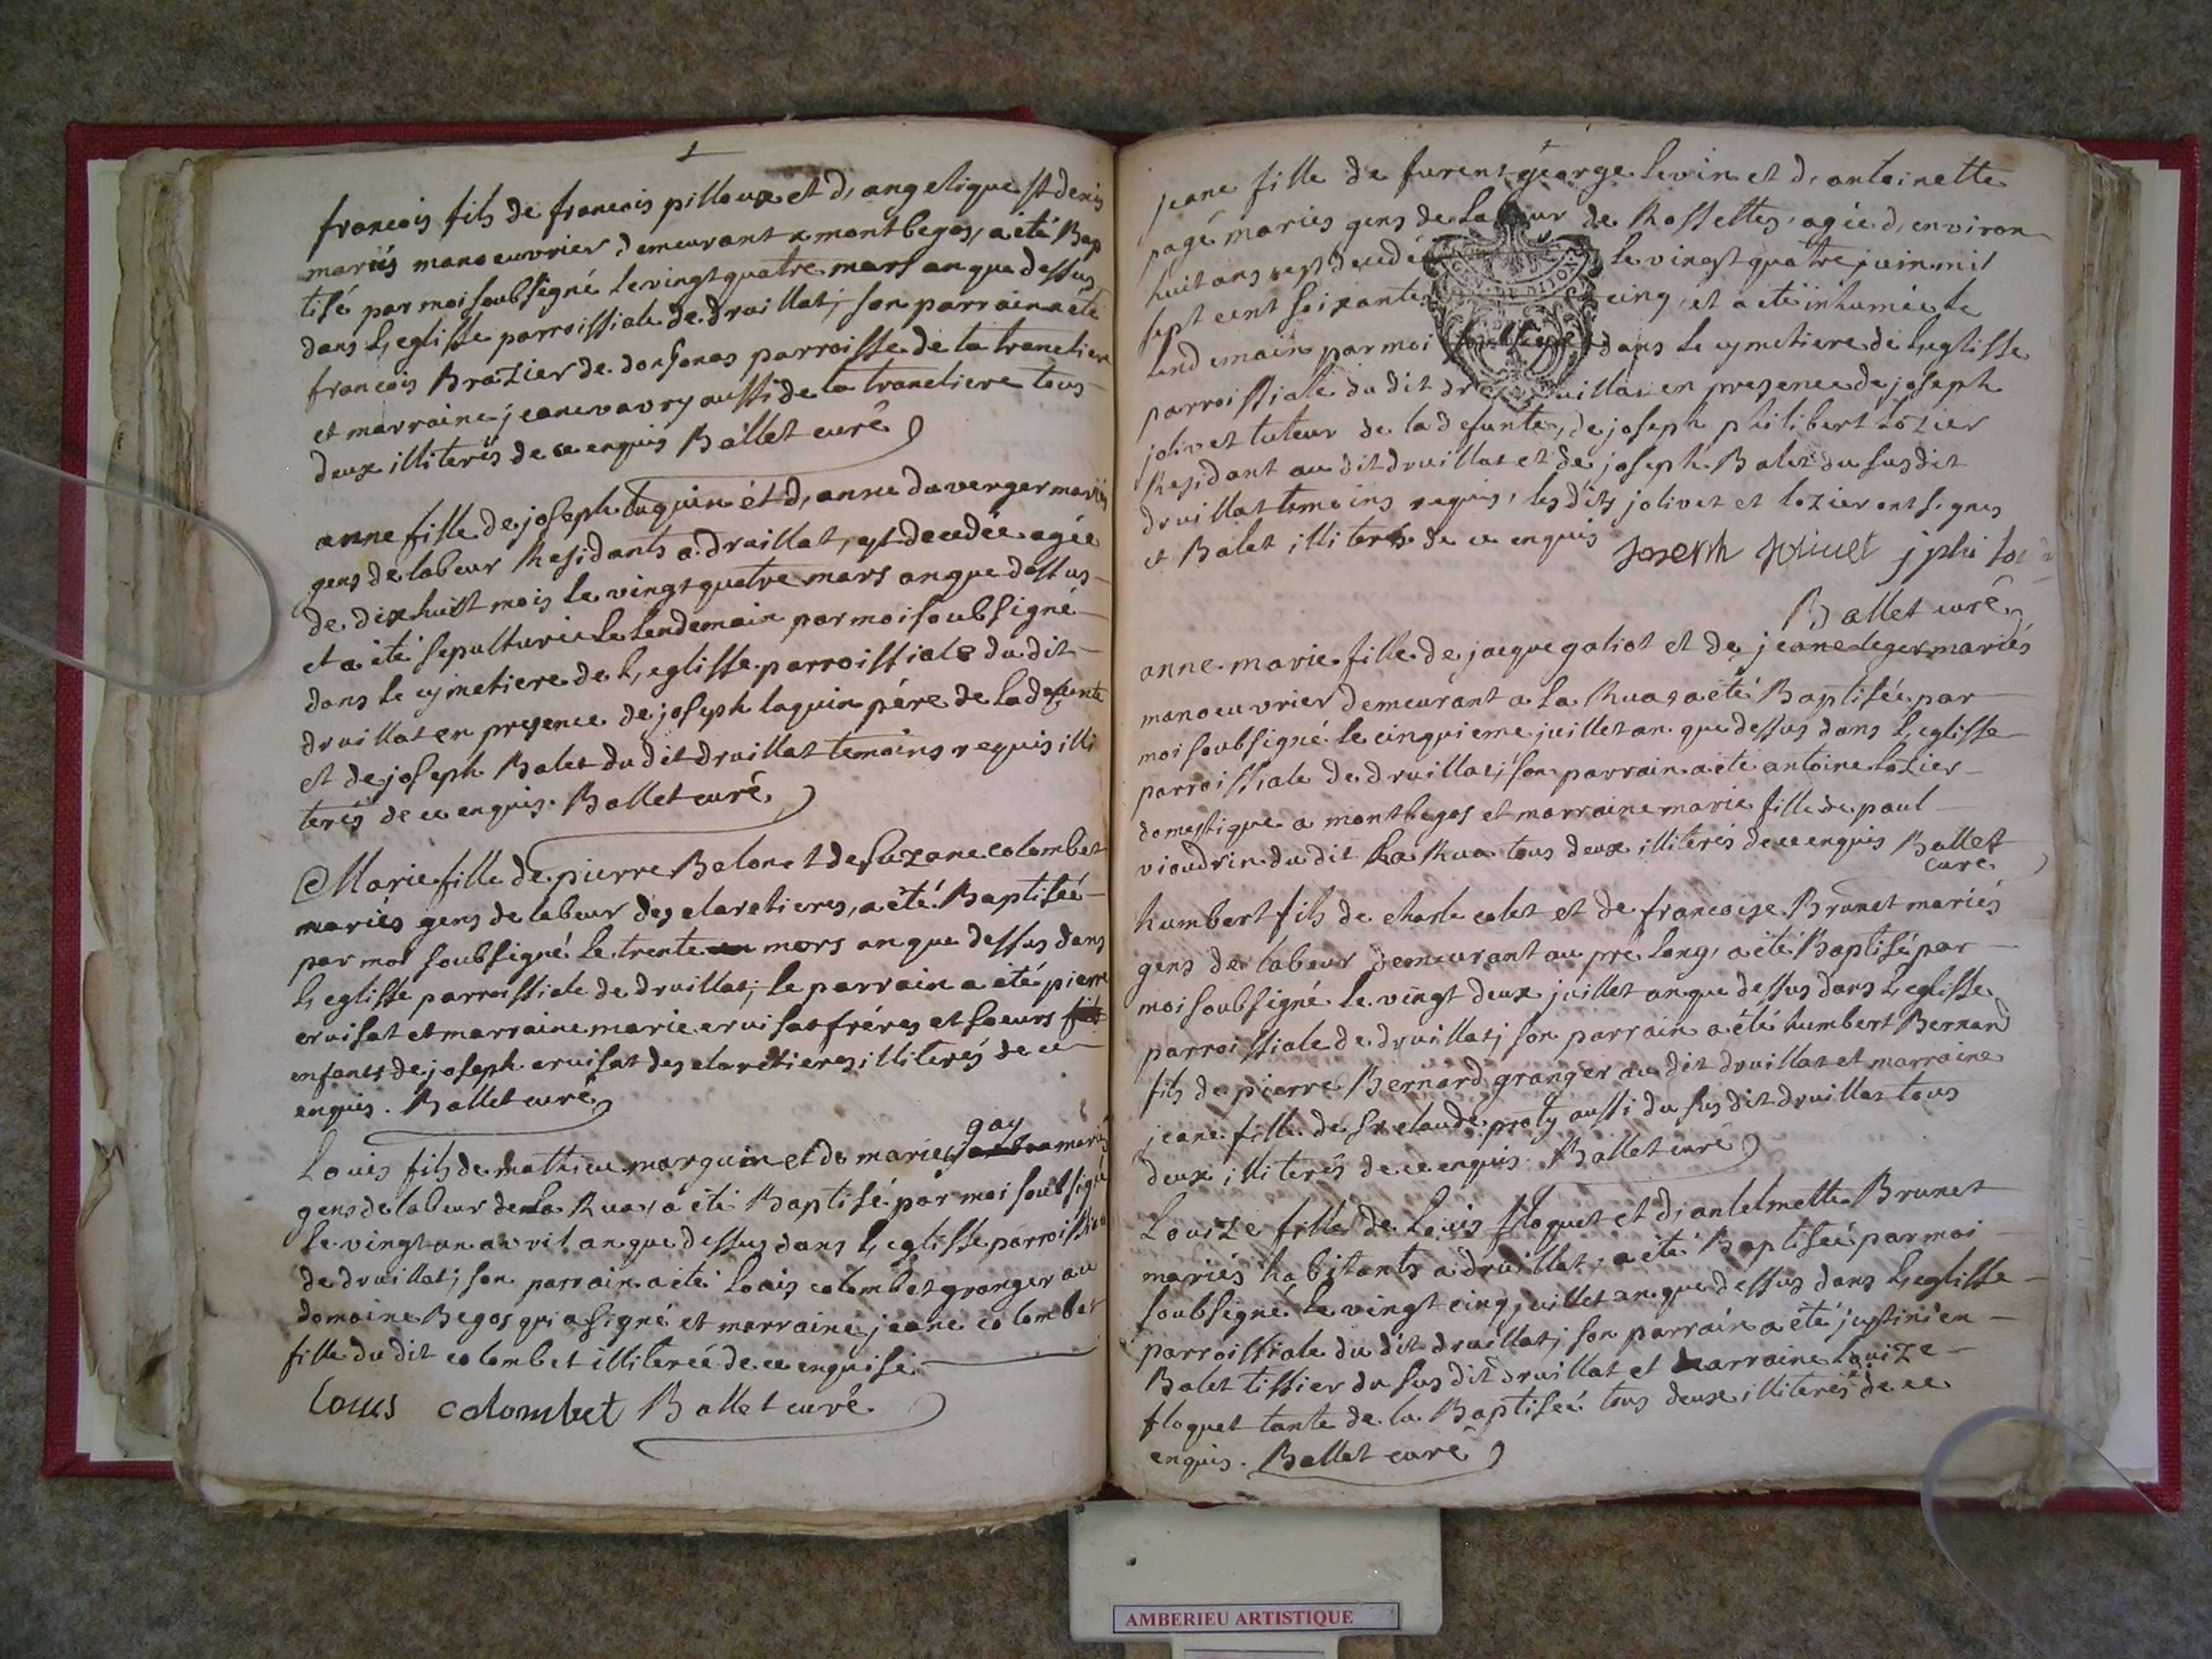 francois fils de francois pilloux et d, angelique st denis
mariés manoeuvrier demeurant a montbegos, a été Bap
tisé par moi soubsigné le vingt quatre mars an que dessus
dans l, eglisse parroissiale de druillat; son parrain a été
francois Brazier de donsonas parroisse de la trancliere
et marraine jeane vavry aussi de la trancliere tous
deux illiterés de ce enquis Ballet curé
anne fille de joseph luquin et d, anne duverger mariés
gens de labeur Residants a druillat, est decedée agée
de dix huit mois le vingt quatre mars an que dessus
et a été sepulturée le lendemain par moi soubsigné
dans le cymetiere de l, eglisse parroissiale du dit
druillat en presence de joseph luquin pére de la defunte
et de joseph Balet du dit druillat temoins requis illi
terés de ce enquis. Ballet curé
Marie fille de pierre Balon et de suzane colombet
mariés gens de labeur des claretieres, a été Baptiseé
par moi soubsigné le trente mars an que dessus dans
l, eglisse parroissiale de druillat; le parrain a été pierre
cruisat et marraine marie cruisat fréres et soeurs
enfants de joseph cruisat des claretieres illiterés de ce
enquis. Ballet curé
gay
Louis fils de mathieu marguin et de marie mariés
gens de labeur de la Rua, a été Baptisé par moi soubsigné
le vingt un avril an que dessus dans l, eglisse parroissiale
de druillat; son parrain a été louis colombet granger au
domaine Begos qui a signé et marraine jeane colombet
fille du dit colombet illitereé de ce enquise
louis colombet Ballet curé
jeane fille de furent george levin et d, antoinette
pagé mariés gens de labeur de Rossettes, agée d, environ
huit ans est decedé le vingt quatre juin mil
sept cent soixante cinq, et a été inhumée le
lendemain par moi soubsigné dans le cymetiere de l, eglisse
parroissiale du dit druillat en presence de joseph
jolivet tuteur de la defunte, de joseph philibert lozier
Residant au dit druillat et de joseph Balet du susdit
druillat temoins requis, les dits jolivet et lozier ont signes
et Balet illiterés de ce enquis Joseph Jolivet j phi
Ballet curé
anne marie fille de jacque galiot et de jeane leger mariés
manoeuvrier demeurant a la Rua, a été Baptisée par
moi soubsigné le cinquieme juillet an que dessus dans l, eglisse
parroissiale de druillat; son parrain a été antoine lozier
domestique a montbegos et marraine marie fille de paul
vioudrin du dit la Rua tous deux illiterés de ce enquis Ballet
curé
humbert fils de charle colet et de francoise Brunet mariés
gens de labeur demeurant au pré long, a été Baptisé par
moi soubsigné le vingt deux juillet an que dessus dans l, eglisse
parroissiale de druillat; son parrain a été humbert Bernard
fils de pierre Bernard granger au dit druillat et marraine
jeane fille de sr claude proty aussi du susdit druillat tous
deux illiterés de ce enquis. Ballet curé
Louize fille de louis floquet et d, antelmette Brunet
mariés habitants a druillat, a été Baptiseé par moi
soubsigné le vingt cinq juillet an que dessus dans l, eglisse
parroissiale du dit druillat; son parrain a été justinien
Balet tissier du susdit druillat et marraine louize
floquet tante de la Baptiseé tous deux illiterés de ce
enquis. Ballet curé
AMBERIEU ARTISTIQUE